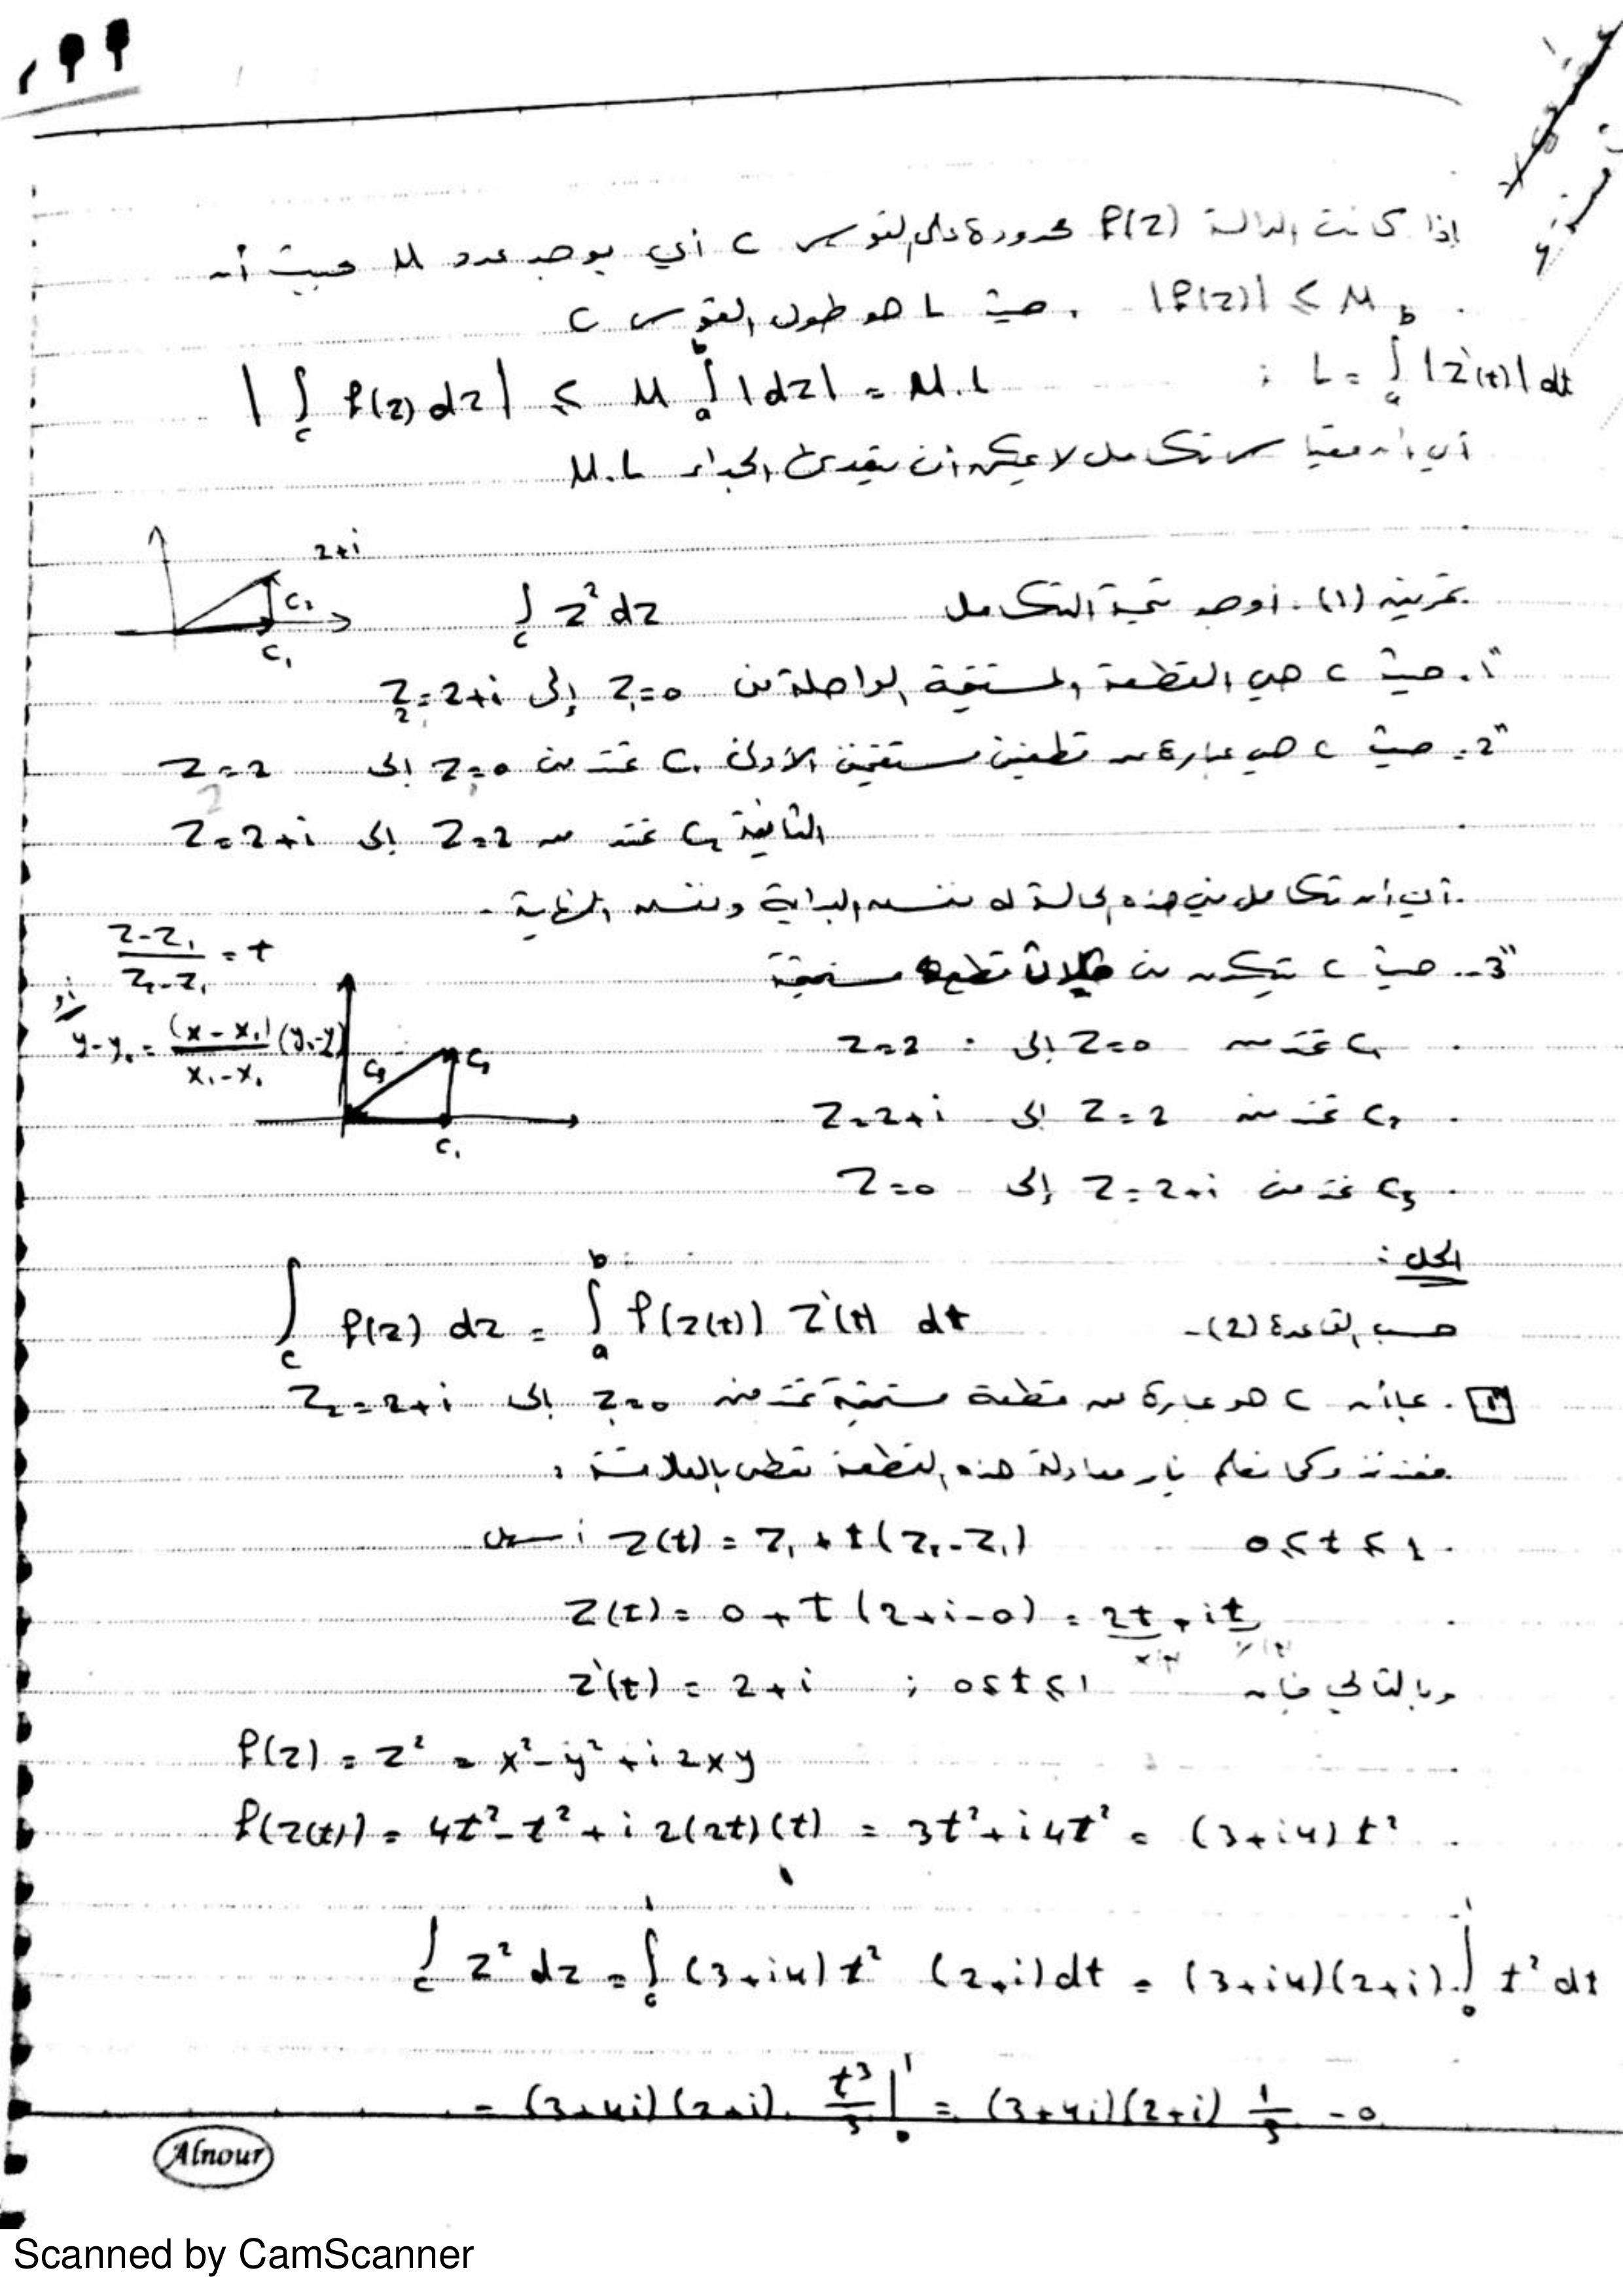 إذا كانت الدالة f(z) محدودة على القوس C أي يوجد عدد M حيث أن
|f(z)| ≤ M . حيث L هو طول القوس C
|∫_C f(z) dz| ≤ M ∫_a^b |dz| = M.L ; L = ∫_a^b |z'(t)| dt
أي أن مقياس تكامل لا يمكن أن يتعدى الجداء M.L
2+i
C₂
C₁
تمرين (1). أوجد قيمة التكامل ∫_C z² dz
1". حيث C هي القطعة المستقيمة الواصلة من z₁=0 إلى z₂=2+i
2". حيث C هي عبارة عن قطعتين مستقيمتين الأولى C₁ تمتد من z=0 إلى z=2
الثانية C₂ تمتد من z=2 إلى z=2+i
أي أن تكامل في هذه الحالة له نفس البداية ونفس النهاية.
3". حيث C يتكون من ثلاث قطع مستقيمة
(z-z₁)/(z₂-z₁) = t
أو
y-y₁ = (x-x₁)/(x₂-x₁) (y₂-y₁)
C₃
C₂
C₁
C₁ تمتد من z=0 إلى z=2
C₂ تمتد من z=2 إلى z=2+i
C₃ تمتد من z=2+i إلى z=0
الحل :
حسب القاعدة (2)- ∫_C f(z) dz = ∫_a^b f(z(t)) z'(t) dt
1". بما أن C هو عبارة عن قطعة مستقيمة تمتد من z₁=0 إلى z₂=2+i
فعندئذ وكما نعلم فإن معادلة هذه القطعة تعطى بالعلاقة :
z(t) = z₁ + t(z₂-z₁) 0≤t≤1
z(t) = 0 + t(2+i-0) = 2t + it
x(t) y(t)
وبالتالي فإن z'(t) = 2+i ; 0≤t≤1
f(z) = z² = x²-y²+i2xy
f(z(t)) = 4t²-t²+i2(2t)(t) = 3t²+i4t² = (3+i4)t²
∫_C z² dz = ∫_0^1 (3+i4)t² (2+i)dt = (3+i4)(2+i).∫_0^1 t² dt
= (3+4i)(2+i). t³/3 |_0^1 = (3+4i)(2+i) 1/3 - 0
Alnour
Scanned by CamScanner